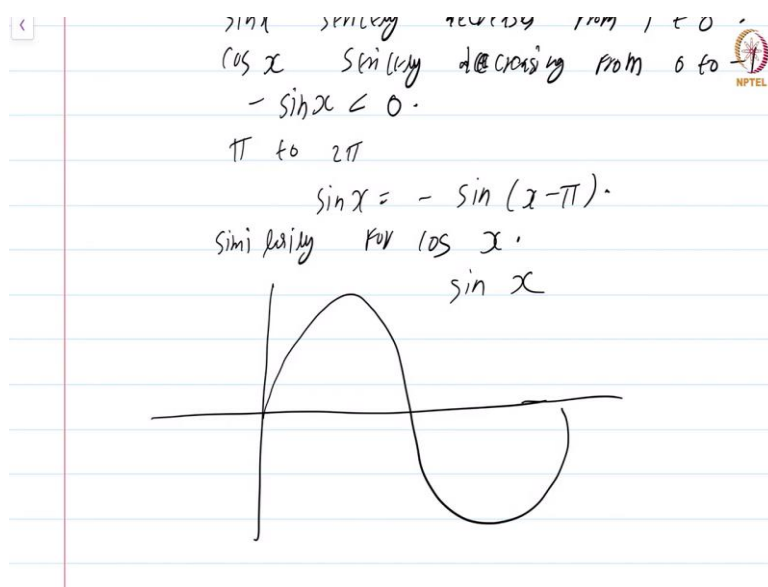 sinx strictly decreases from 1 to 0.
cos x strictly decreasing from 0 to -1
NPTEL
- sinx < 0.
π to 2π
sinx = - sin (x-π).
similarly for cos x.
sin x